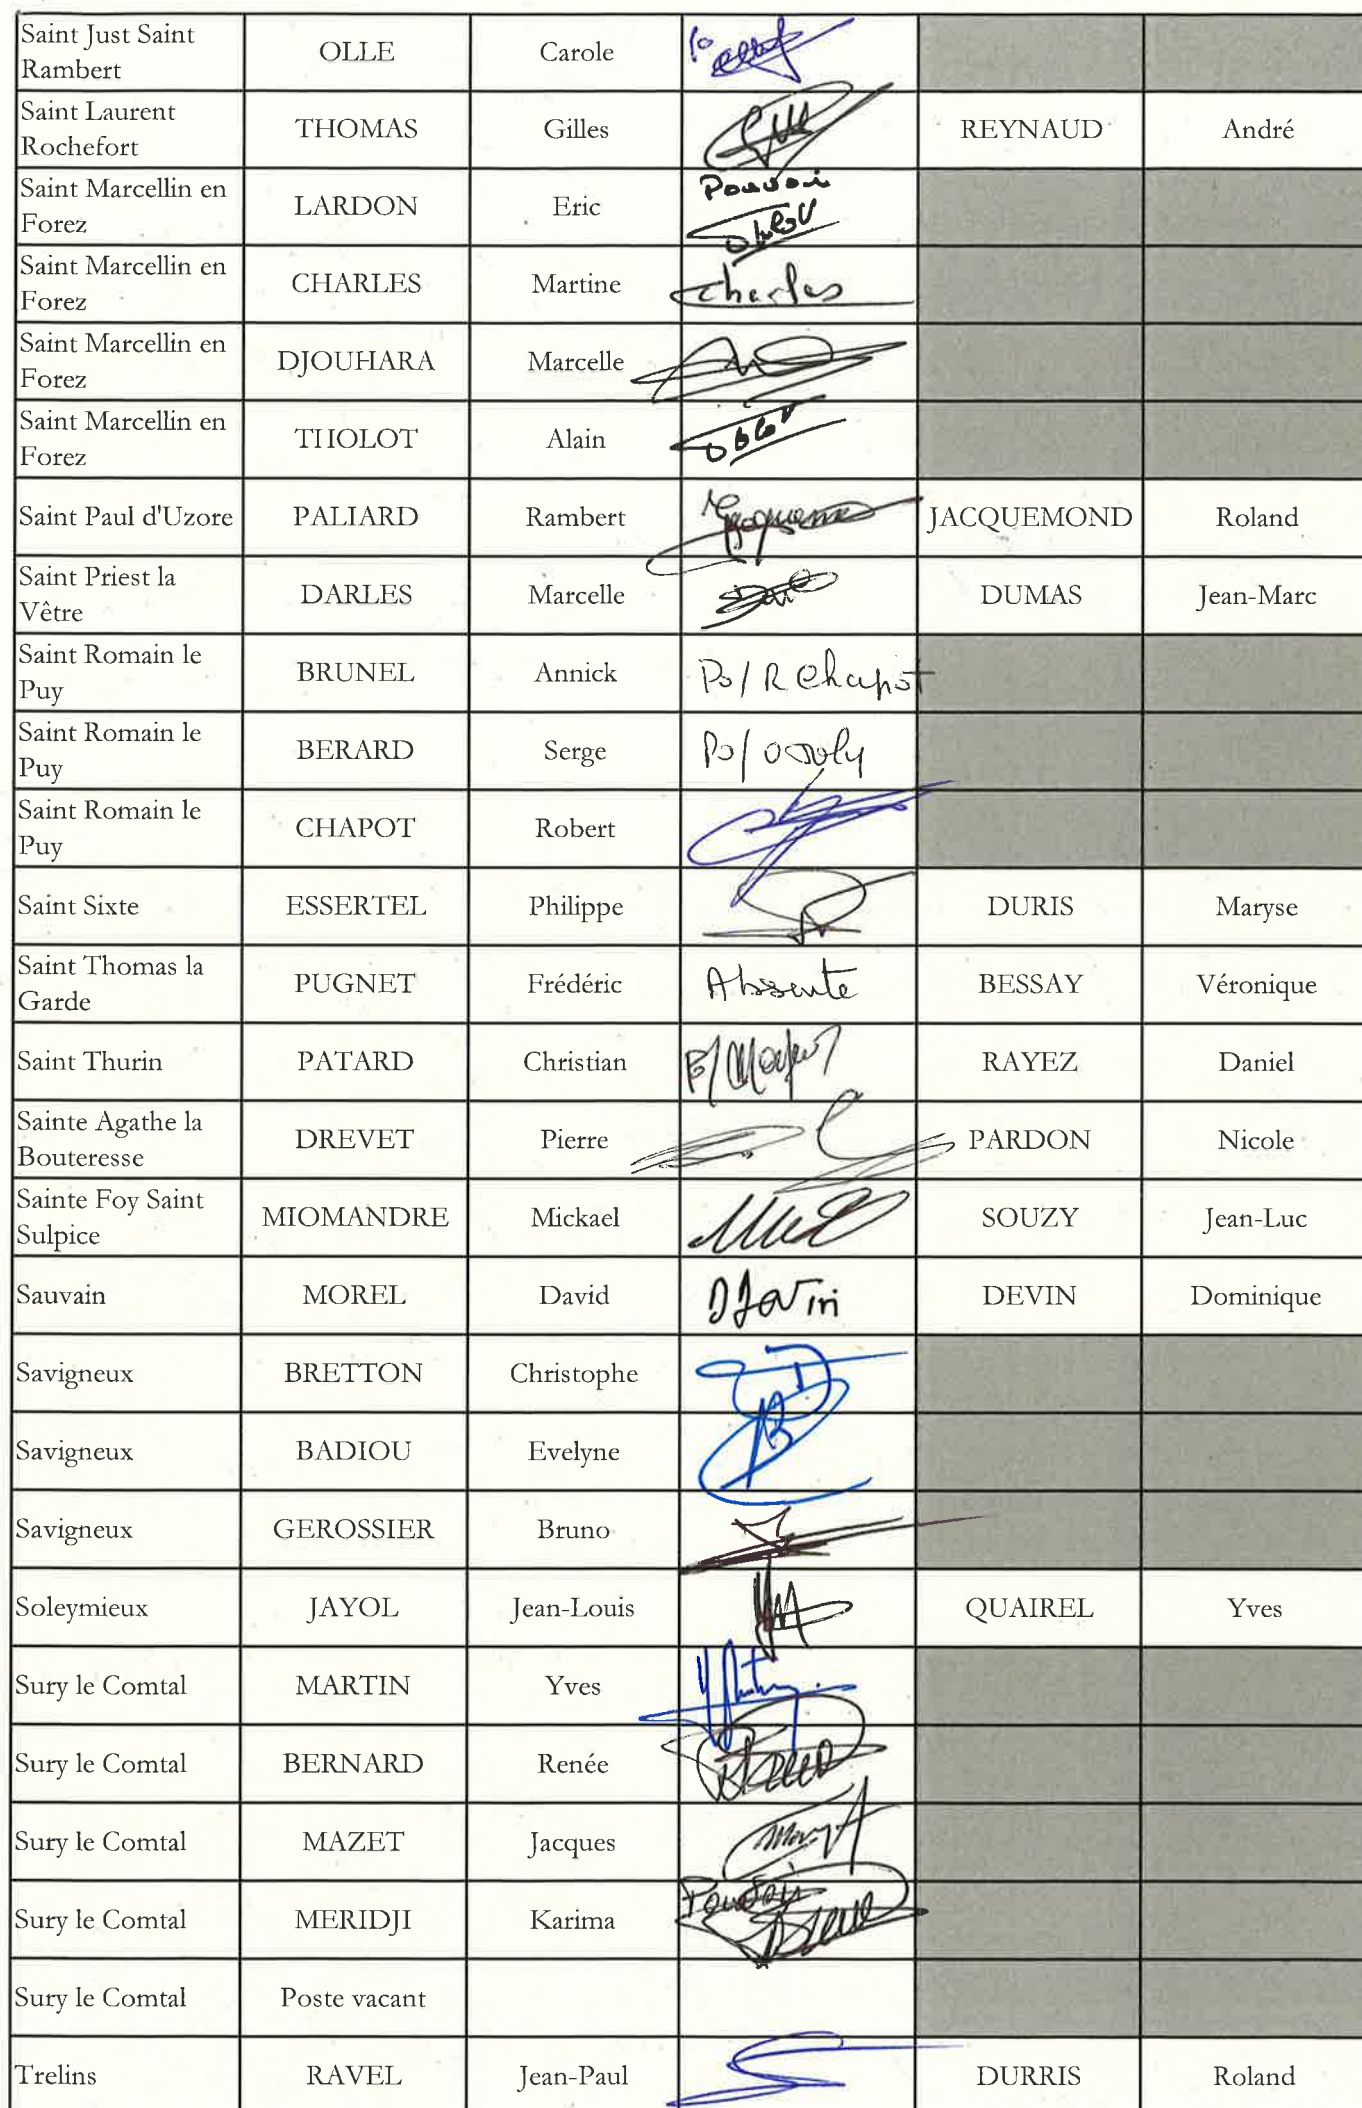 Saint Just Saint
Rambert
OLLE
Carole
Saint Laurent
Rochefort
THOMAS
Gilles
REYNAUD
André
Saint Marcellin en
Forez
LARDON
Eric
Pouvoir
Saint Marcellin en
Forez
CHARLES
Martine
Charles
Saint Marcellin en
Forez
DJOUHARA
Marcelle
Saint Marcellin en
Forez
THOLOT
Alain
Saint Paul d'Uzore
PALIARD
Rambert
JACQUEMOND
Roland
Saint Priest la
Vêtre
DARLES
Marcelle
DUMAS
Jean-Marc
Saint Romain le
Puy
BRUNEL
Annick
Po/ R Chapot
Saint Romain le
Puy
BERARD
Serge
Po/
Saint Romain le
Puy
CHAPOT
Robert
Saint Sixte
ESSERTEL
Philippe
DURIS
Maryse
Saint Thomas la
Garde
PUGNET
Frédéric
Absente
BESSAY
Véronique
Saint Thurin
PATARD
Christian
RAYEZ
Daniel
Sainte Agathe la
Bouteresse
DREVET
Pierre
PARDON
Nicole
Sainte Foy Saint
Sulpice
MIOMANDRE
Mickael
SOUZY
Jean-Luc
Sauvain
MOREL
David
DEVIN
Dominique
Savigneux
BRETTON
Christophe
Savigneux
BADIOU
Evelyne
Savigneux
GEROSSIER
Bruno
Soleymieux
JAYOL
Jean-Louis
QUAIREL
Yves
Sury le Comtal
MARTIN
Yves
Sury le Comtal
BERNARD
Renée
Sury le Comtal
MAZET
Jacques
Sury le Comtal
MERIDJI
Karima
Pouvoir
Sury le Comtal
Poste vacant
Trelins
RAVEL
Jean-Paul
DURRIS
Roland